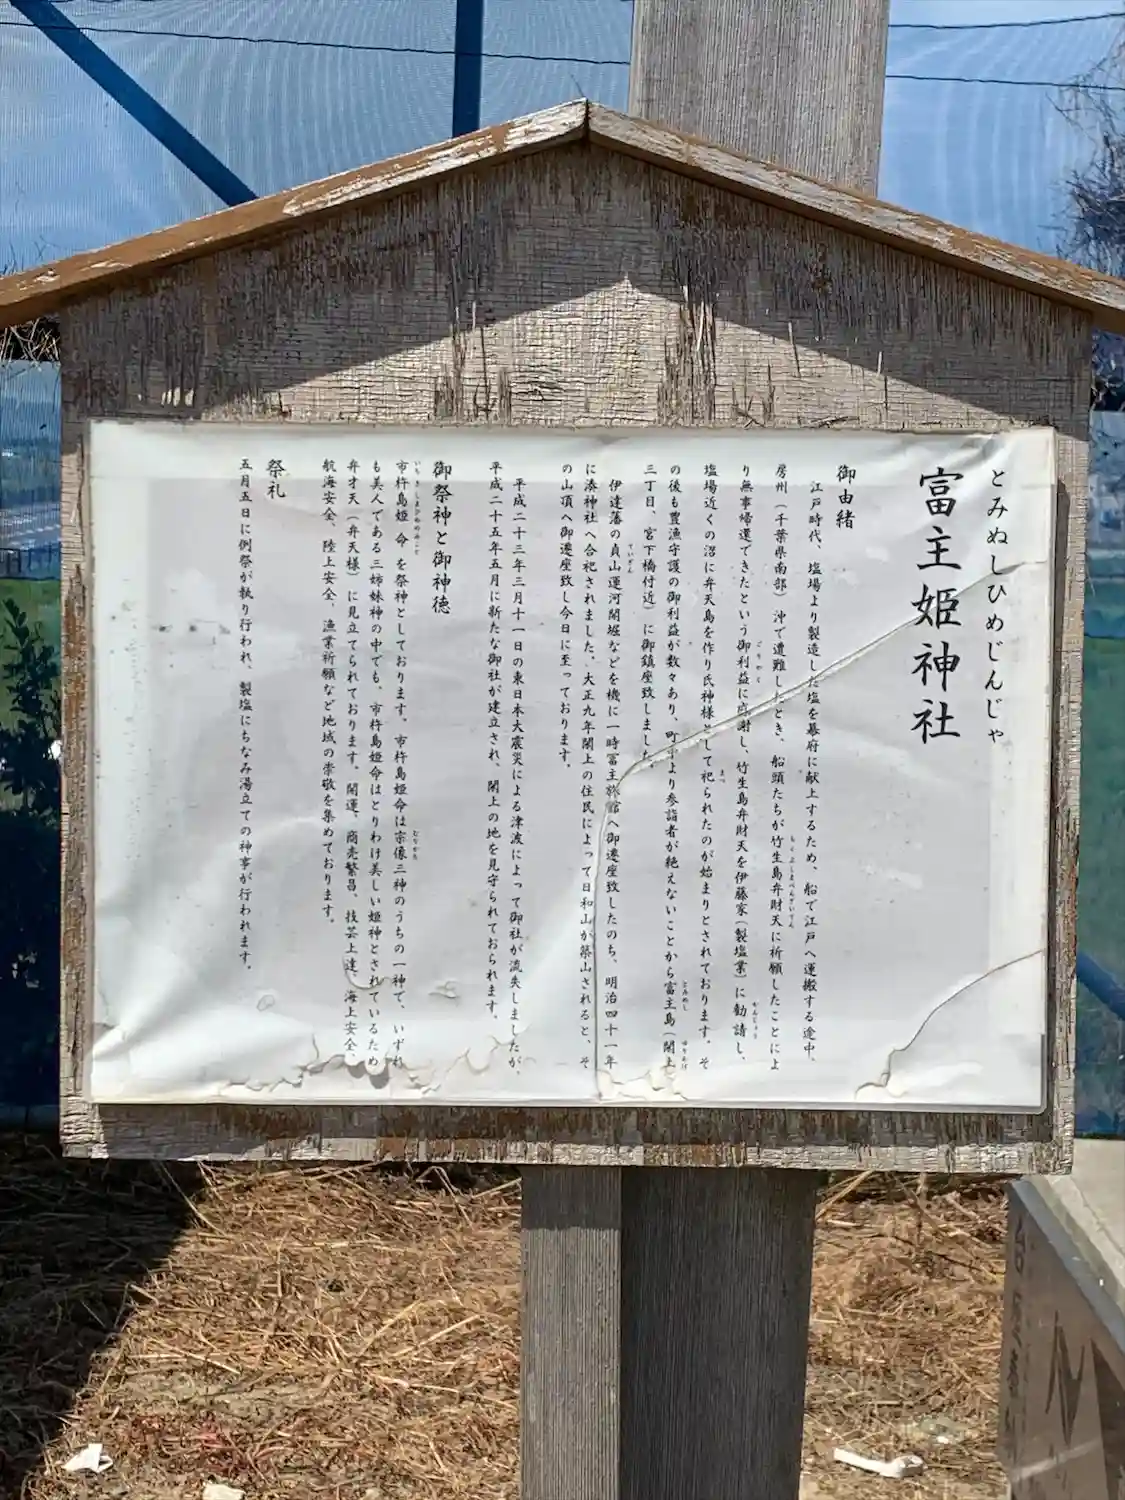 とみぬしひめじんじゃ
富主姫神社
御由緒
江戸時代、塩場より製造した塩を幕府に献上するため、船で江戸へ運搬する途中、
房州(千葉県南部)沖で遭難したとき、船頭たちが竹生島弁財天に祈願したことによ
り無事帰還できたという御利益に感謝し、竹生島弁財天を伊藤家(製塩業)に勧請し、
塩場近くの沼に弁天島を作り氏神様として祀られたのが始まりとされております。そ
の後も豊漁守護の御利益が数々あり、町内より参詣者が絶えないことから富主島(閖上
三丁目、宮下橋付近)に御鎮座致しました。
伊達藩の貞山運河開堀などを機に一時富主旅館へ御遷座致したのち、明治四十一年
に湊神社へ合祀されました。大正九年閖上の住民によって日和山が築山されると、そ
の山頂へ御遷座致し今日に至っております。
平成二十三年三月十一日の東日本大震災による津波によって御社が流失しましたが、
平成二十五年五月に新たな御社が建立され、閖上の地を見守られておられます。
御祭神と御神徳
市杵島姫命を祭神としております。市杵島姫命は宗像三神のうちの一神で、いずれ
も美人である三姉妹神の中でも、市杵島姫命はとりわけ美しい姫神とされているため
弁才天(弁天様)に見立てられております。開運、商売繁昌、技芸上達、海上安全、
航海安全、陸上安全、漁業祈願など地域の崇敬を集めております。
祭礼
五月五日に例祭が執り行われ、製塩にちなみ湯立ての神事が行われます。